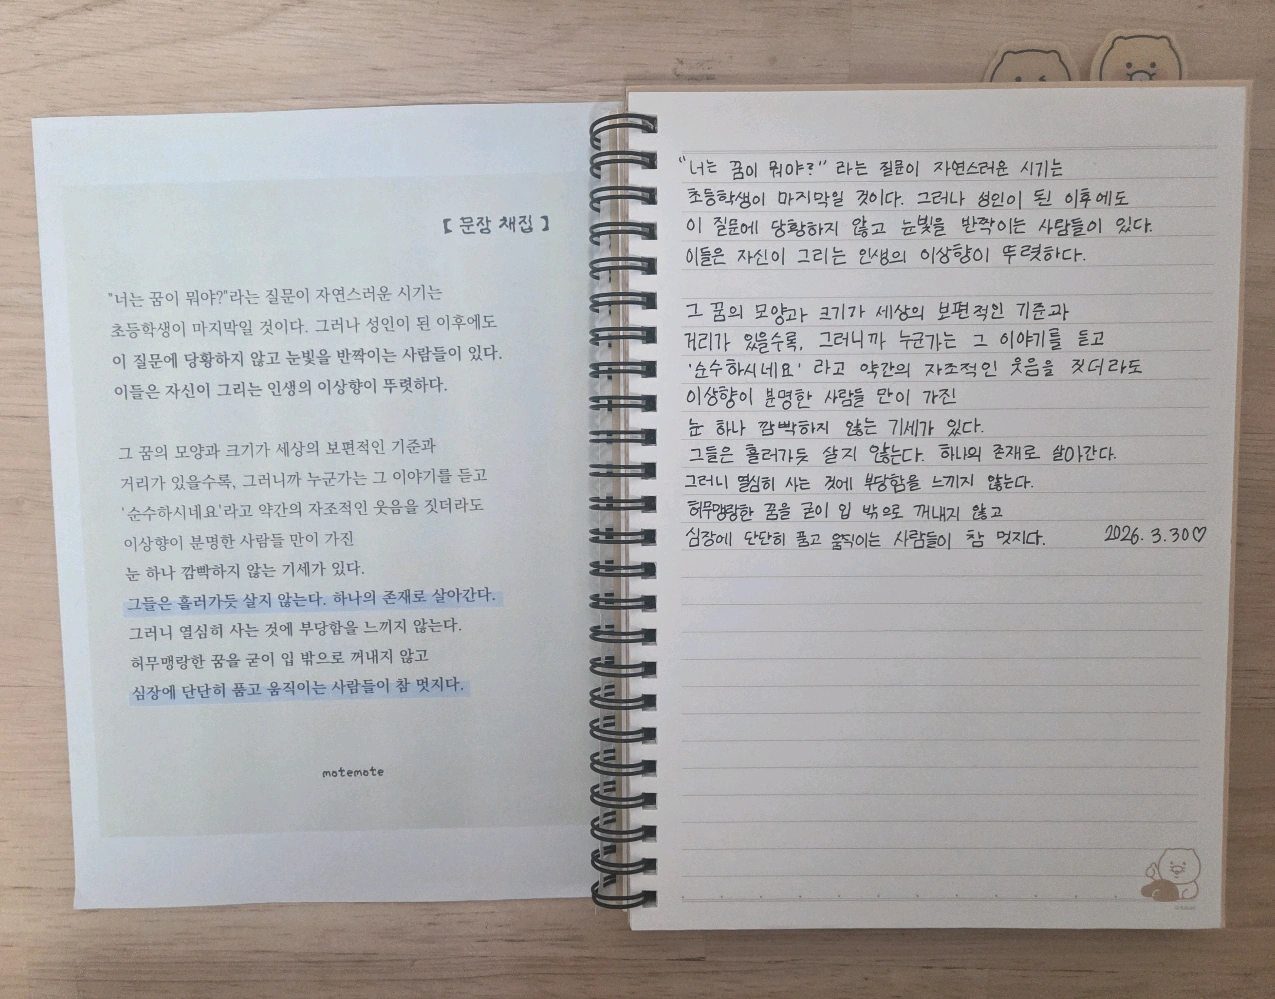 【 문장 채집 】
"너는 꿈이 뭐야?"라는 질문이 자연스러운 시기는
초등학생이 마지막일 것이다. 그러나 성인이 된 이후에도
이 질문에 당황하지 않고 눈빛을 반짝이는 사람들이 있다.
이들은 자신이 그리는 인생의 이상향이 뚜렷하다.
그 꿈의 모양과 크기가 세상의 보편적인 기준과
거리가 있을수록, 그러니까 누군가는 그 이야기를 듣고
'순수하시네요'라고 약간의 자조적인 웃음을 짓더라도
이상향이 분명한 사람들 만이 가진
눈 하나 깜빡하지 않는 기세가 있다.
그들은 흘러가듯 살지 않는다. 하나의 존재로 살아간다.
그러니 열심히 사는 것에 부당함을 느끼지 않는다.
허무맹랑한 꿈을 굳이 입 밖으로 꺼내지 않고
심장에 단단히 품고 움직이는 사람들이 참 멋지다.
motemote
"너는 꿈이 뭐야?" 라는 질문이 자연스러운 시기는
초등학생이 마지막일 것이다. 그러나 성인이 된 이후에도
이 질문에 당황하지 않고 눈빛을 반짝이는 사람들이 있다.
이들은 자신이 그리는 인생의 이상향이 뚜렷하다.
그 꿈의 모양과 크기가 세상의 보편적인 기준과
거리가 있을수록, 그러니까 누군가는 그 이야기를 듣고
'순수하시네요' 라고 약간의 자조적인 웃음을 짓더라도
이상향이 분명한 사람들 만이 가진
눈 하나 깜빡하지 않는 기세가 있다.
그들은 흘러가듯 살지 않는다. 하나의 존재로 살아간다.
그러니 열심히 사는 것에 부당함을 느끼지 않는다.
허무맹랑한 꿈을 굳이 입 밖으로 꺼내지 않고
심장에 단단히 품고 움직이는 사람들이 참 멋지다. 2026. 3. 30♡